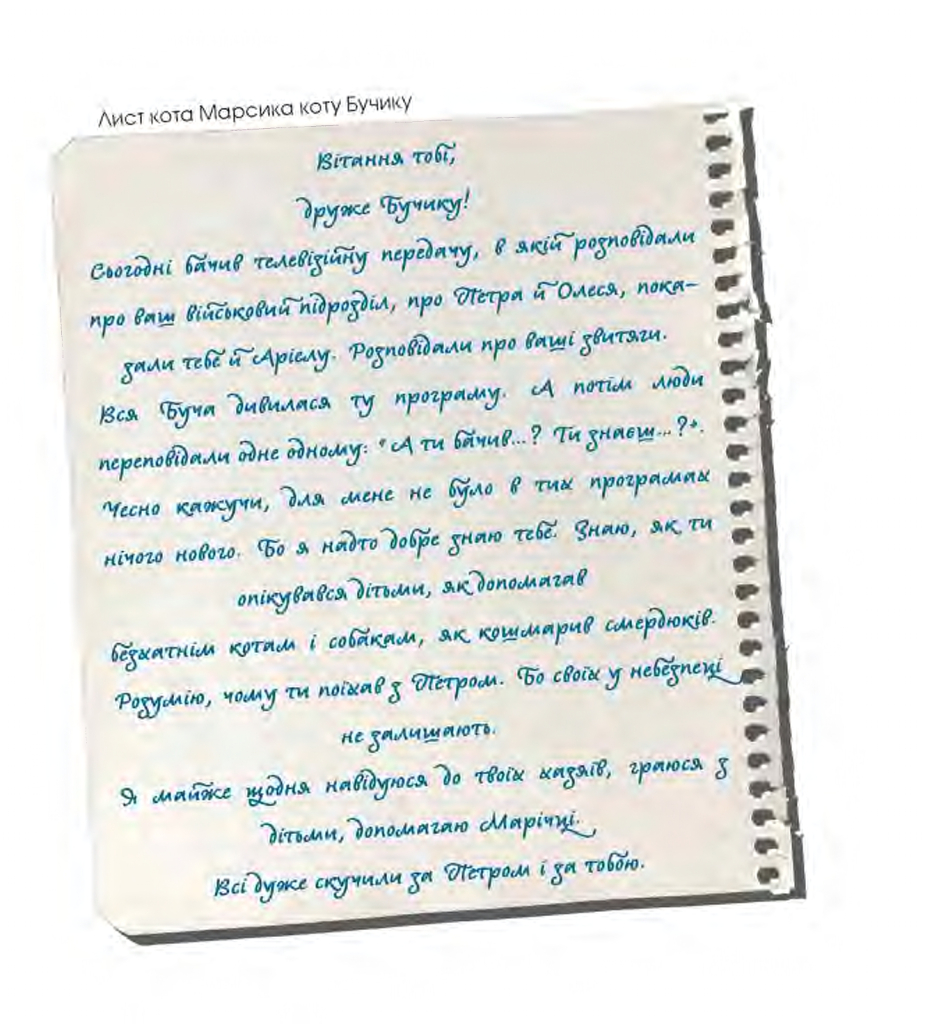 Лист кота Марсика коту Бучику
Вітання тобі,
друже Бучику!
Сьогодні бачив телевізійну передачу, в якій розповідали
про ваш військовий підрозділ, про Петра й Олеся, пока-
зали тебе й Арієлу. Розповідали про ваші звитяги.
Вся Буча дивилася ту програму. А потім люди
переповідали одне одному: "А ти бачив...? Ти знаєш...?".
Чесно кажучи, для мене не було в тих програмах
нічого нового. Бо я надто добре знаю тебе. Знаю, як ти
опікувався дітьми, як допомагав
безхатнім котам і собакам, як кошмарив смердюків.
Розумію, чому ти поїхав з Петром. Бо своїх у небезпеці
не залишають.
Я майже щодня навідуюся до твоїх хазяїв, граюся з
дітьми, допомагаю Марічці.
Всі дуже скучили за Петром і за тобою.